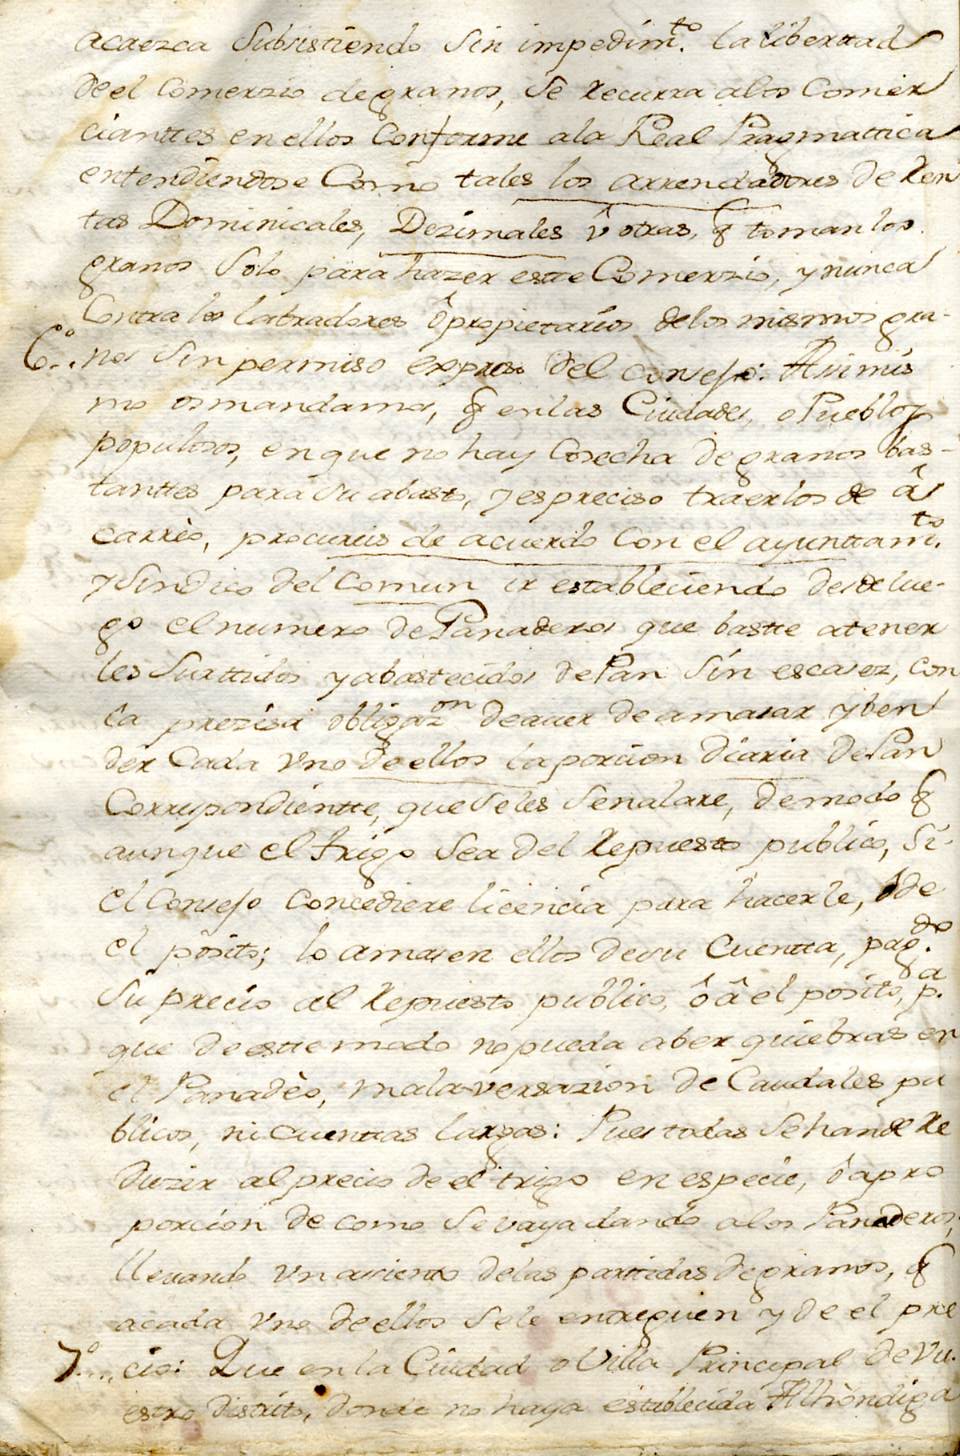 acaezca Subsistiendo sin impedim.to la libertad
de el Comerzio de granos, se recurra alos Comer
ciantes en ellos Conforme ala Real Pragmattica
entendiendose Como tales los arrendadores de Ren
tas Dominicales, Dezimales û otras, q toman los
granos Solo para hazer este Comerzio, y nunca
Contra los labradores ô propietarios delos mismos gra-
6.º.. nos sin permiso expreso del Consejo: Asimis
mo os mandamos, q en las Ciudades, o Pueblos
populosos, en que no hay Cosecha de granos bas-
tanttes para su abasto, y es preciso traerlos de â
carrèo, procureis de acuerdo Con el ayunttam.to
y Sindico del Comun ir estableciendo desde lue-
go el numero de Panaderos que bastte atener
les Surttidos y abastecidos de Pan sin escasez, con
la prezisa obligaz.on de auer de amasar y ben
der Cada vno de ellos la porcion diaria de Pan
Correspondientte, que se les Señalare, de modo q
aunque el trigo Sea del Repuesto publico, Si-
el Consejo Concediere licencia para hacerle, ô de
el pòsito; lo amasen ellos de su Cuentta, pag.do
su precio al Repuesto publico, ô â el posito, p.a
que de estte modo no pueda aber quiebras en
el Panadèo, malaversazion de Caudales pu
blicos, ni cuenttas largas: Pues todas se han de Re
duzir al precio de el trigo en especie, ô apro
porcion de como se vaya dando alos Panaderos,
lleuando vn asiento delas parttidas de granos, q
acada vno de ellos se le entreguen y de el pre
7.º... cio: Que en la Ciudad o Villa Principal de Vu.
estro distrito, donde no haya establecida Alhòndiga